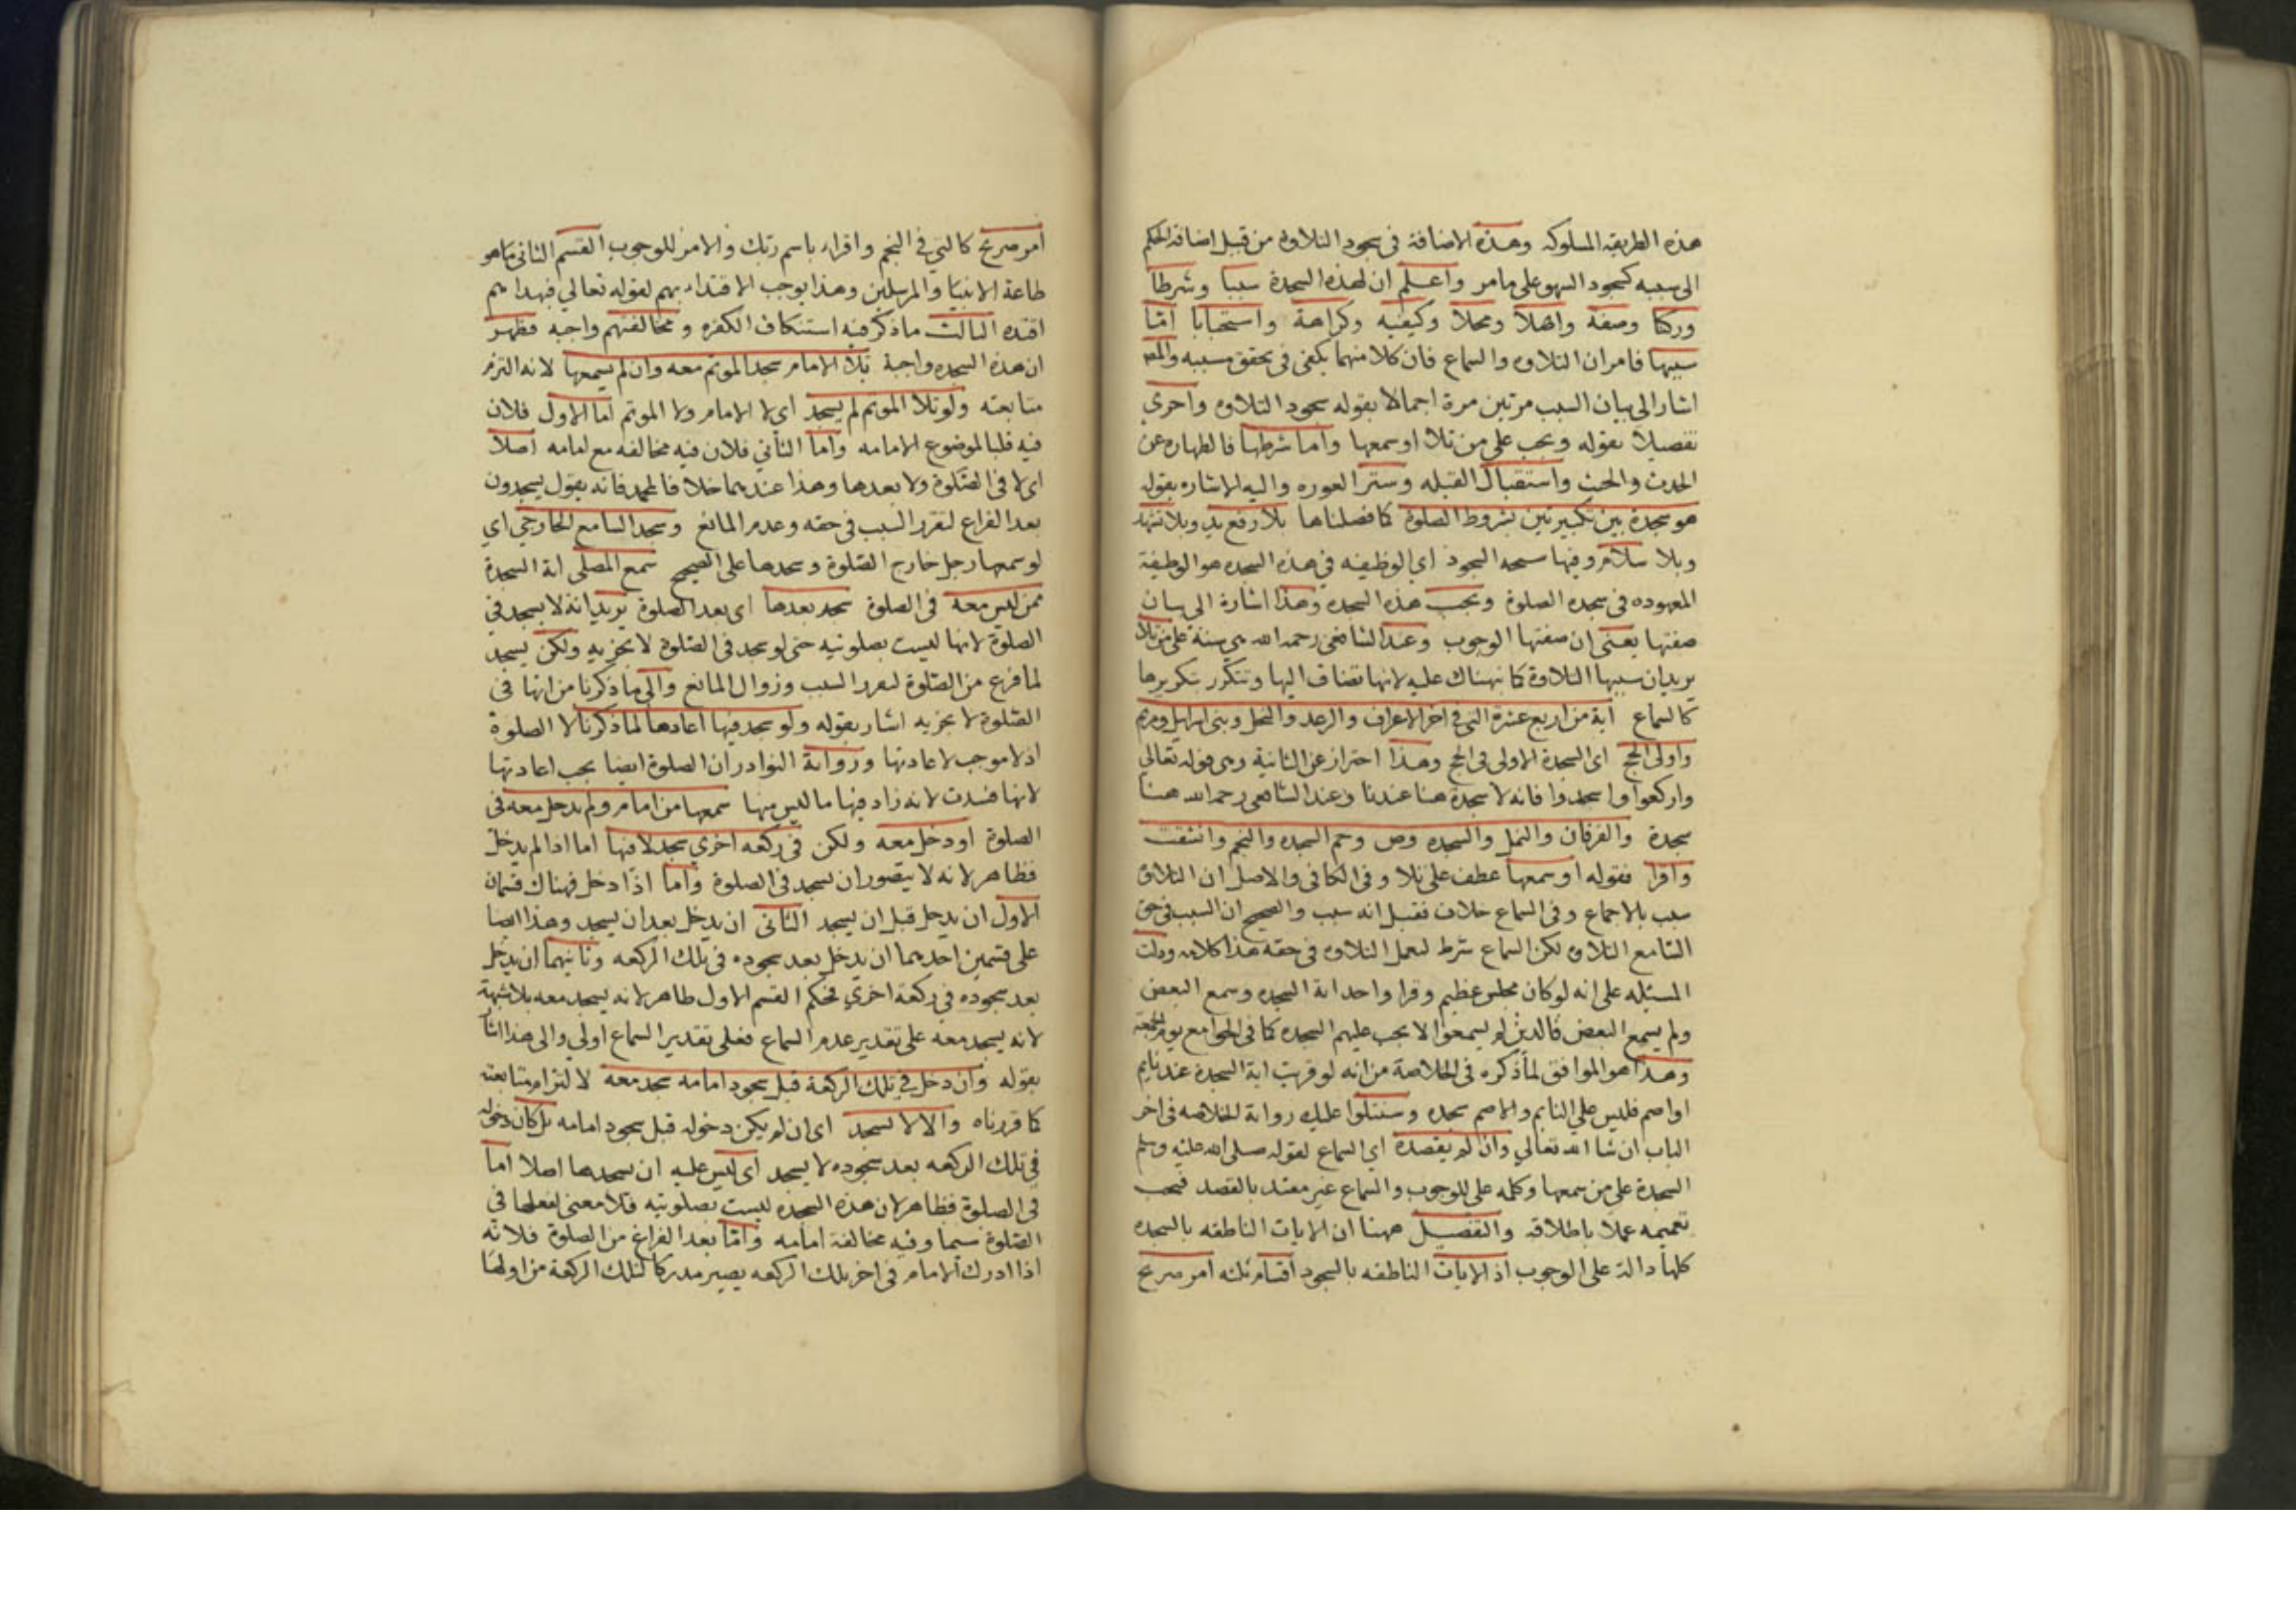 هذه الطريقه المسلوكه وهذه الاضافة في سجود التلاوة من قبيل اضافة الحكم
الى سببه كسجود السهو على مامر واعلم ان لهذه السجدة سببا وشرطا
وركنا وصفة واهلا ومحلا وكيفيه وكراهة واستحبابا اما
سببها فامران التلاوه والسماع فان كلا منهما يكفى في تحقق مسببه والمص
اشار الى بيان السبب مرتين مرة اجمالا بقوله سجود التلاوه واخرى
تفصيلا بقوله ويجب على من تلا او سمعها واما شرطها فالطهاره عن
الحدث والخبث واستقبال القبله وستر العوره واليه الاشاره بقوله
هو سجدة بين تكبيرتين بشروط الصلوة كما فصلناها بلا رفع يد وبلا تشهد
وبلا سلام وفيها سبحه السجود اي الوظيفه في هذه السجده هو الوظيفة
المعهوده في سجده الصلوة وتجب هذه السجده وهذا اشارة الى بيان
صفتها يعنى ان صفتها الوجوب وعند الشافعى رحمه الله هي سنة على من تلا
يريد ان سببها التلاوة كما نبهناك عليه لانها تضاف اليها وتتكرر بتكررها
كالسماع اية من اربع عشرة التى في اخر الاعراف والرعد والنحل وبنى اسرايل ومريم
واولى الحج اى السجدة الاولى في الحج وهذا احتراز عن الثانية وهى قوله تعالى
واركعوا واسجدوا فانه لا سجدة هنا عندنا وعند الشافعى رحمه الله هنا
سجدة والفرقان والنمل والسجده وص وحم السجده والنجم وانشقت
واقرا فقوله او سمعها عطف على تلا وفى الكافى والاصل ان التلاوة
سبب بالاجماع وفى السماع خلاف فقيل انه سبب والصحيح ان السبب في حق
السامع التلاوة لكن السماع شرط لعمل التلاوه في حقه هذا كلامه ودلت
المسئله على انه لو كان مجلس عظيم وقرا واحد اية السجده وسمع البعض
ولم يسمع البعض فالذين لم يسمعوا لا يجب عليهم السجده كما في الجوامع يوم الجمعة
وهذا هو الموافق لما ذكره في الخلاصة من انه لو قريت اية السجدة عند نايم
او اصم فليس على النايم والاصم سجده وسنتلوا عليك رواية الخلاصه في اخر
الباب ان شا الله تعالي وان لم يقصده اي السماع لقوله صلى الله عليه وسلم
السجدة على من سمعها وكلمه على للوجوب والسماع غير مقيد بالقصد فيجب
تعميمه عملا باطلاقه والتفصيل ههنا ان الايات الناطقه بالسجده
كلها دالة على الوجوب اذ الايات الناطقه بالسجود اقسام ثلثه امر صريح
امر صريح كالتي في النجم واقراء باسم ربك والامر للوجوب القسم الثانى ما هو
طاعة الانبيا والمرسلين وهذا يوجب الاقتداء بهم لقوله تعالي فبهداهم
اقتده الثالث ما ذكر فيه استنكاف الكفره ومخالفتهم واجبه فظهر
ان هذه السجده واجبة تلا الامام سجد الموتم معه وان لم يسمعها لانه التزم
متابعته ولو تلا الموتم لم يسجد اي لا الامام ولا الموتم اما الاول فلان
فيه قلبا لموضوع الامامه واما الثاني فلان فيه مخالفه مع امامه اصلا
اى لا فى الصلوة ولا بعدها وهذا عندهما خلافا لمحمد فانه يقول يسجدون
بعد الفراغ لتقرر السبب فى حقه وعدم المانع وسجد السامع الخارجي اي
لو سمعها رجل خارج الصلوة وسجدها على الصحيح سمع المصلى اية السجدة
ممن ليس معه فى الصلوة سجد بعدها اى بعد الصلوة يريد انه لا يسجد في
الصلوة لانها ليست بصلوتيه حتى لو سجد فى الصلوة لا تجزيه ولكن يسجد
لما فرغ من الصلوة لتقرر السبب وزوال المانع والى ما ذكرنا من انها فى
الصلوة لا يجزيه اشار بقوله ولو سجد فيها اعادها لما ذكرنا لا الصلوة
اذ لا موجب لاعادتها ورواية النوادر ان الصلوة ايضا يجب اعادتها
لانها فسدت لانه زاد فيها ما ليس منها سمعها من امام ولم يدخل معه فى
الصلوة او دخل معه ولكن فى ركعه اخرى سجد لا فيها اما اذا لم يدخل
فظاهر لانه لا يتصور ان يسجد فى الصلوة واما اذا دخل فهناك قسمان
الاول ان يدخل قبل ان يسجد الثانى ان يدخل بعد ان يسجد وهذا ايضا
على قسمين احدهما ان يدخل بعد سجوده فى تلك الركعه وثانيهما ان يدخل
بعد سجوده في ركعة اخرى فحكم القسم الاول ظاهر لانه يسجد معه بلا شبهة
لانه يسجد معه على تقدير عدم السماع فعلى تقدير السماع اولي والى هذا اشار
بقوله وان دخل في تلك الركعة قبل سجود امامه سجد معه لالتزام متابعته
كما قررناه والا لا يسجد اى ان لم يكن دخوله قبل سجود امامه بل كان دخوله
فى تلك الركعه بعد سجوده لا يسجد اى ليس عليه ان يسجدها اصلا اما
فى الصلوة فظاهر لان هذه السجده ليست بصلوتيه فلا معنى لفعلها فى
الصلوة سيما وفيه مخالفة امامه واما بعد الفراغ من الصلوة فلانه
اذا ادرك الامام فى اخر تلك الركعه يصير مدركا لتلك الركعة من اولها